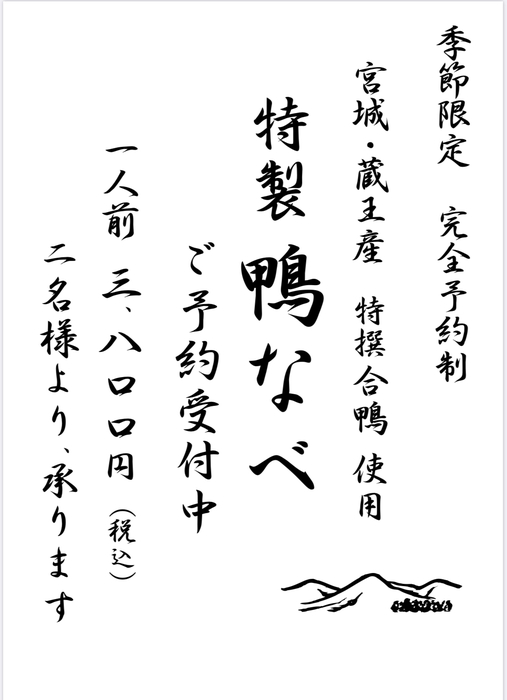 季節限定　完全予約制
宮城・蔵王産　特撰合鴨　使用
特製鴨なべ
ご予約受付中
一人前　三、八〇〇円（税込）
二名様より、承ります